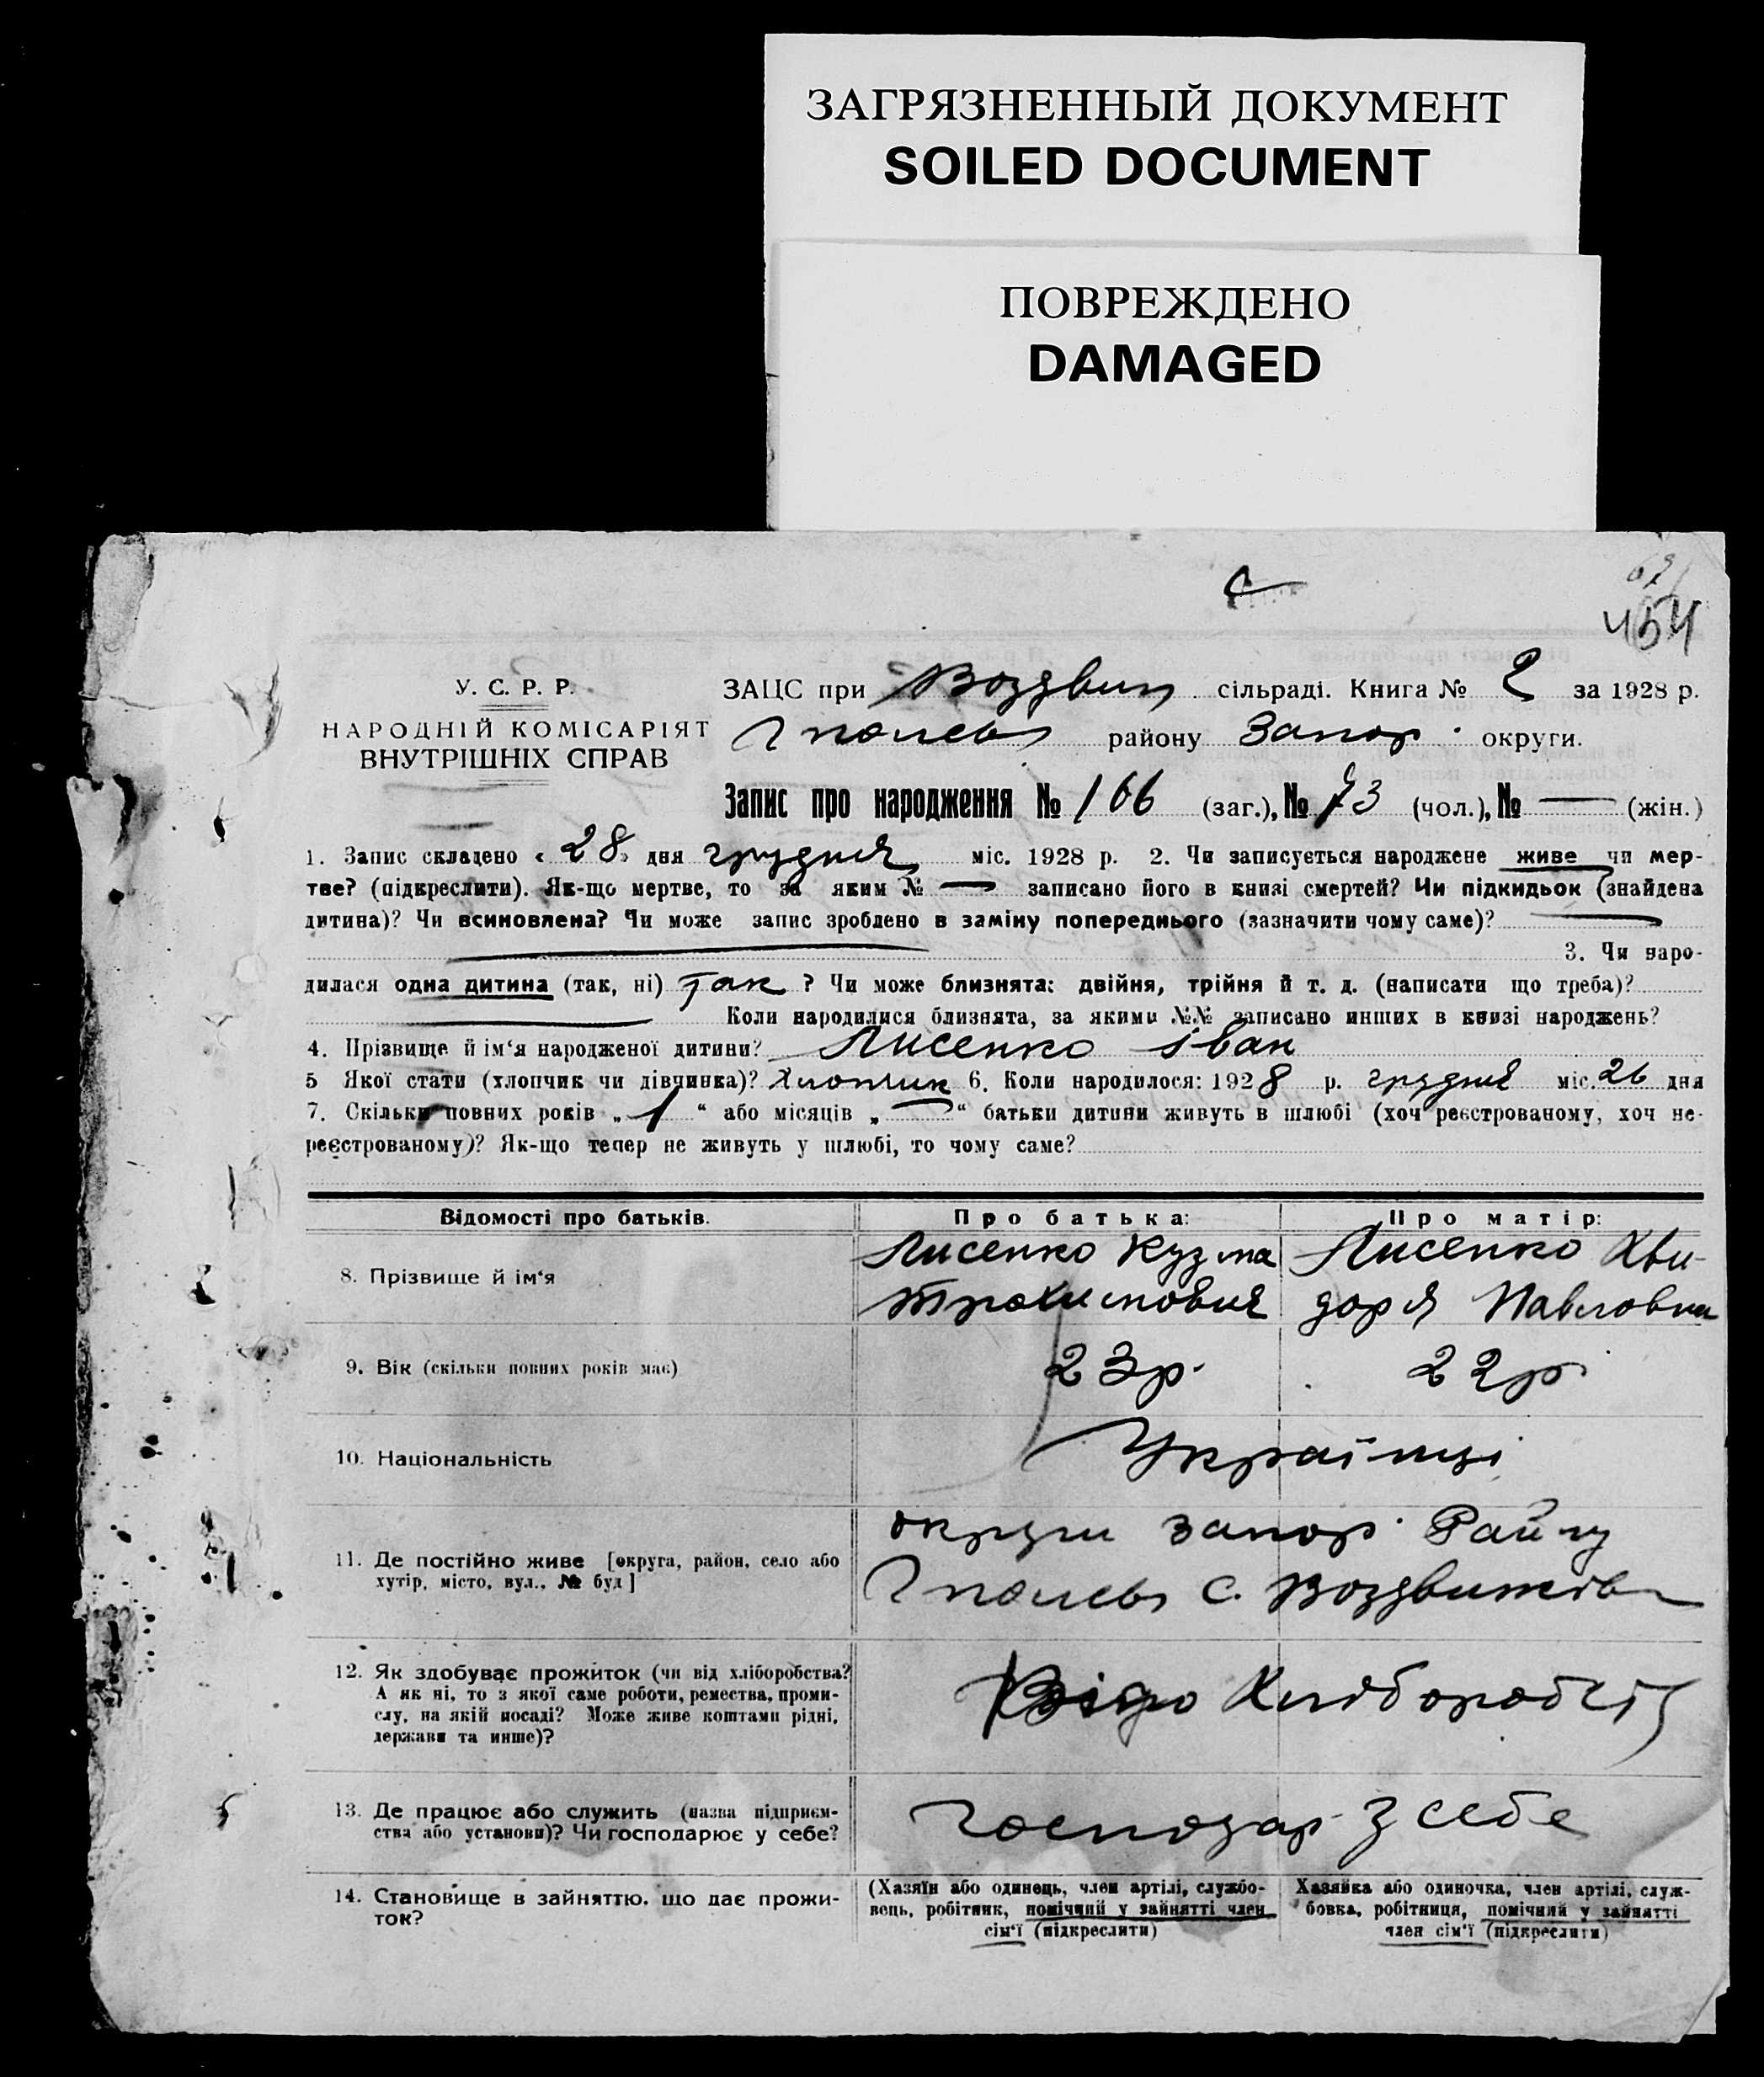 ЗАГРЯЗНЕННЫЙ ДОКУМЕНТ
SOILED DOCUMENT
ПОВРЕЖДЕНО
DAMAGED
454
У. С. Р. Р.
НАРОДНІЙ КОМІСАРІЯТ
ВНУТРІШНІХ СПРАВ
ЗАЦС при Воздвиж сільраді. Книга № 2 за 1928 р.
Гполевь району Запор. округи.
Запис про народження № 166 (заг.), № 73 (чол.), № — (жін.)
1. Запис складено « 28 » дня грудня міс. 1928 р. 2. Чи записується народжене живе чи мер-
тве? (підкреслити). Як-що мертве, то за яким № — записано його в книзі смертей? Чи підкидьок (знайдена
дитина)? Чи всиновлена? Чи може запис зроблено в заміну попереднього (зазначити чому саме)? —
— 3. Чи наро-
дилася одна дитина (так, ні) так ? Чи може близнята: двійня, трійня й т. д. (написати що треба)?
— Коли народилися близнята, за якими №№ записано инших в книзі народжень?
4. Прізвище й ім‘я народженої дитини? Лисенко Іван
5 Якої стати (хлопчик чи дівчинка)? Хлопчик 6. Коли народилося: 1928 р. грудня міс. 26 дня
7. Скільки повних років „ 1 “ або місяців „ — “ батьки дитини живуть в шлюбі (хоч реєстрованому, хоч не-
реєстрованому)? Як-що тепер не живуть у шлюбі, то чому саме?
Відомості про батьків. Про батька: Про матір:
8. Прізвище й ім‘я Лисенко Кузма Лисенко Хви-
Трохимович доря Павловна
9. Вік (скільки повних років має) 23р. 22р.
10. Національність Українці
11. Де постійно живе [округа, район, село або
хутір, місто, вул., № буд]
округи Запор. Рай ну
Гполевь с. Воздвижівк
12. Як здобуває прожиток (чи від хліборобства?
А як ні, то з якої саме роботи, ремества, проми-
слу, на якій посаді? Може живе коштами рідні,
держави та инше)?
Хлібороб
13. Де працює або служить (назва підприєм-
ства або установи)? Чи господарює у себе?
Господар у себе
14. Становище в зайняттю, що дає прожи-
ток?
(Хазяїн або одинець, член артілі, службо-
вець, робітник, помічний у зайнятті член
сім‘ї (підкреслити)
Хазяйка або одиночка, член артілі, служ-
бовка, робітниця, помічний у зайнятті
член сім‘ї (підкреслити)